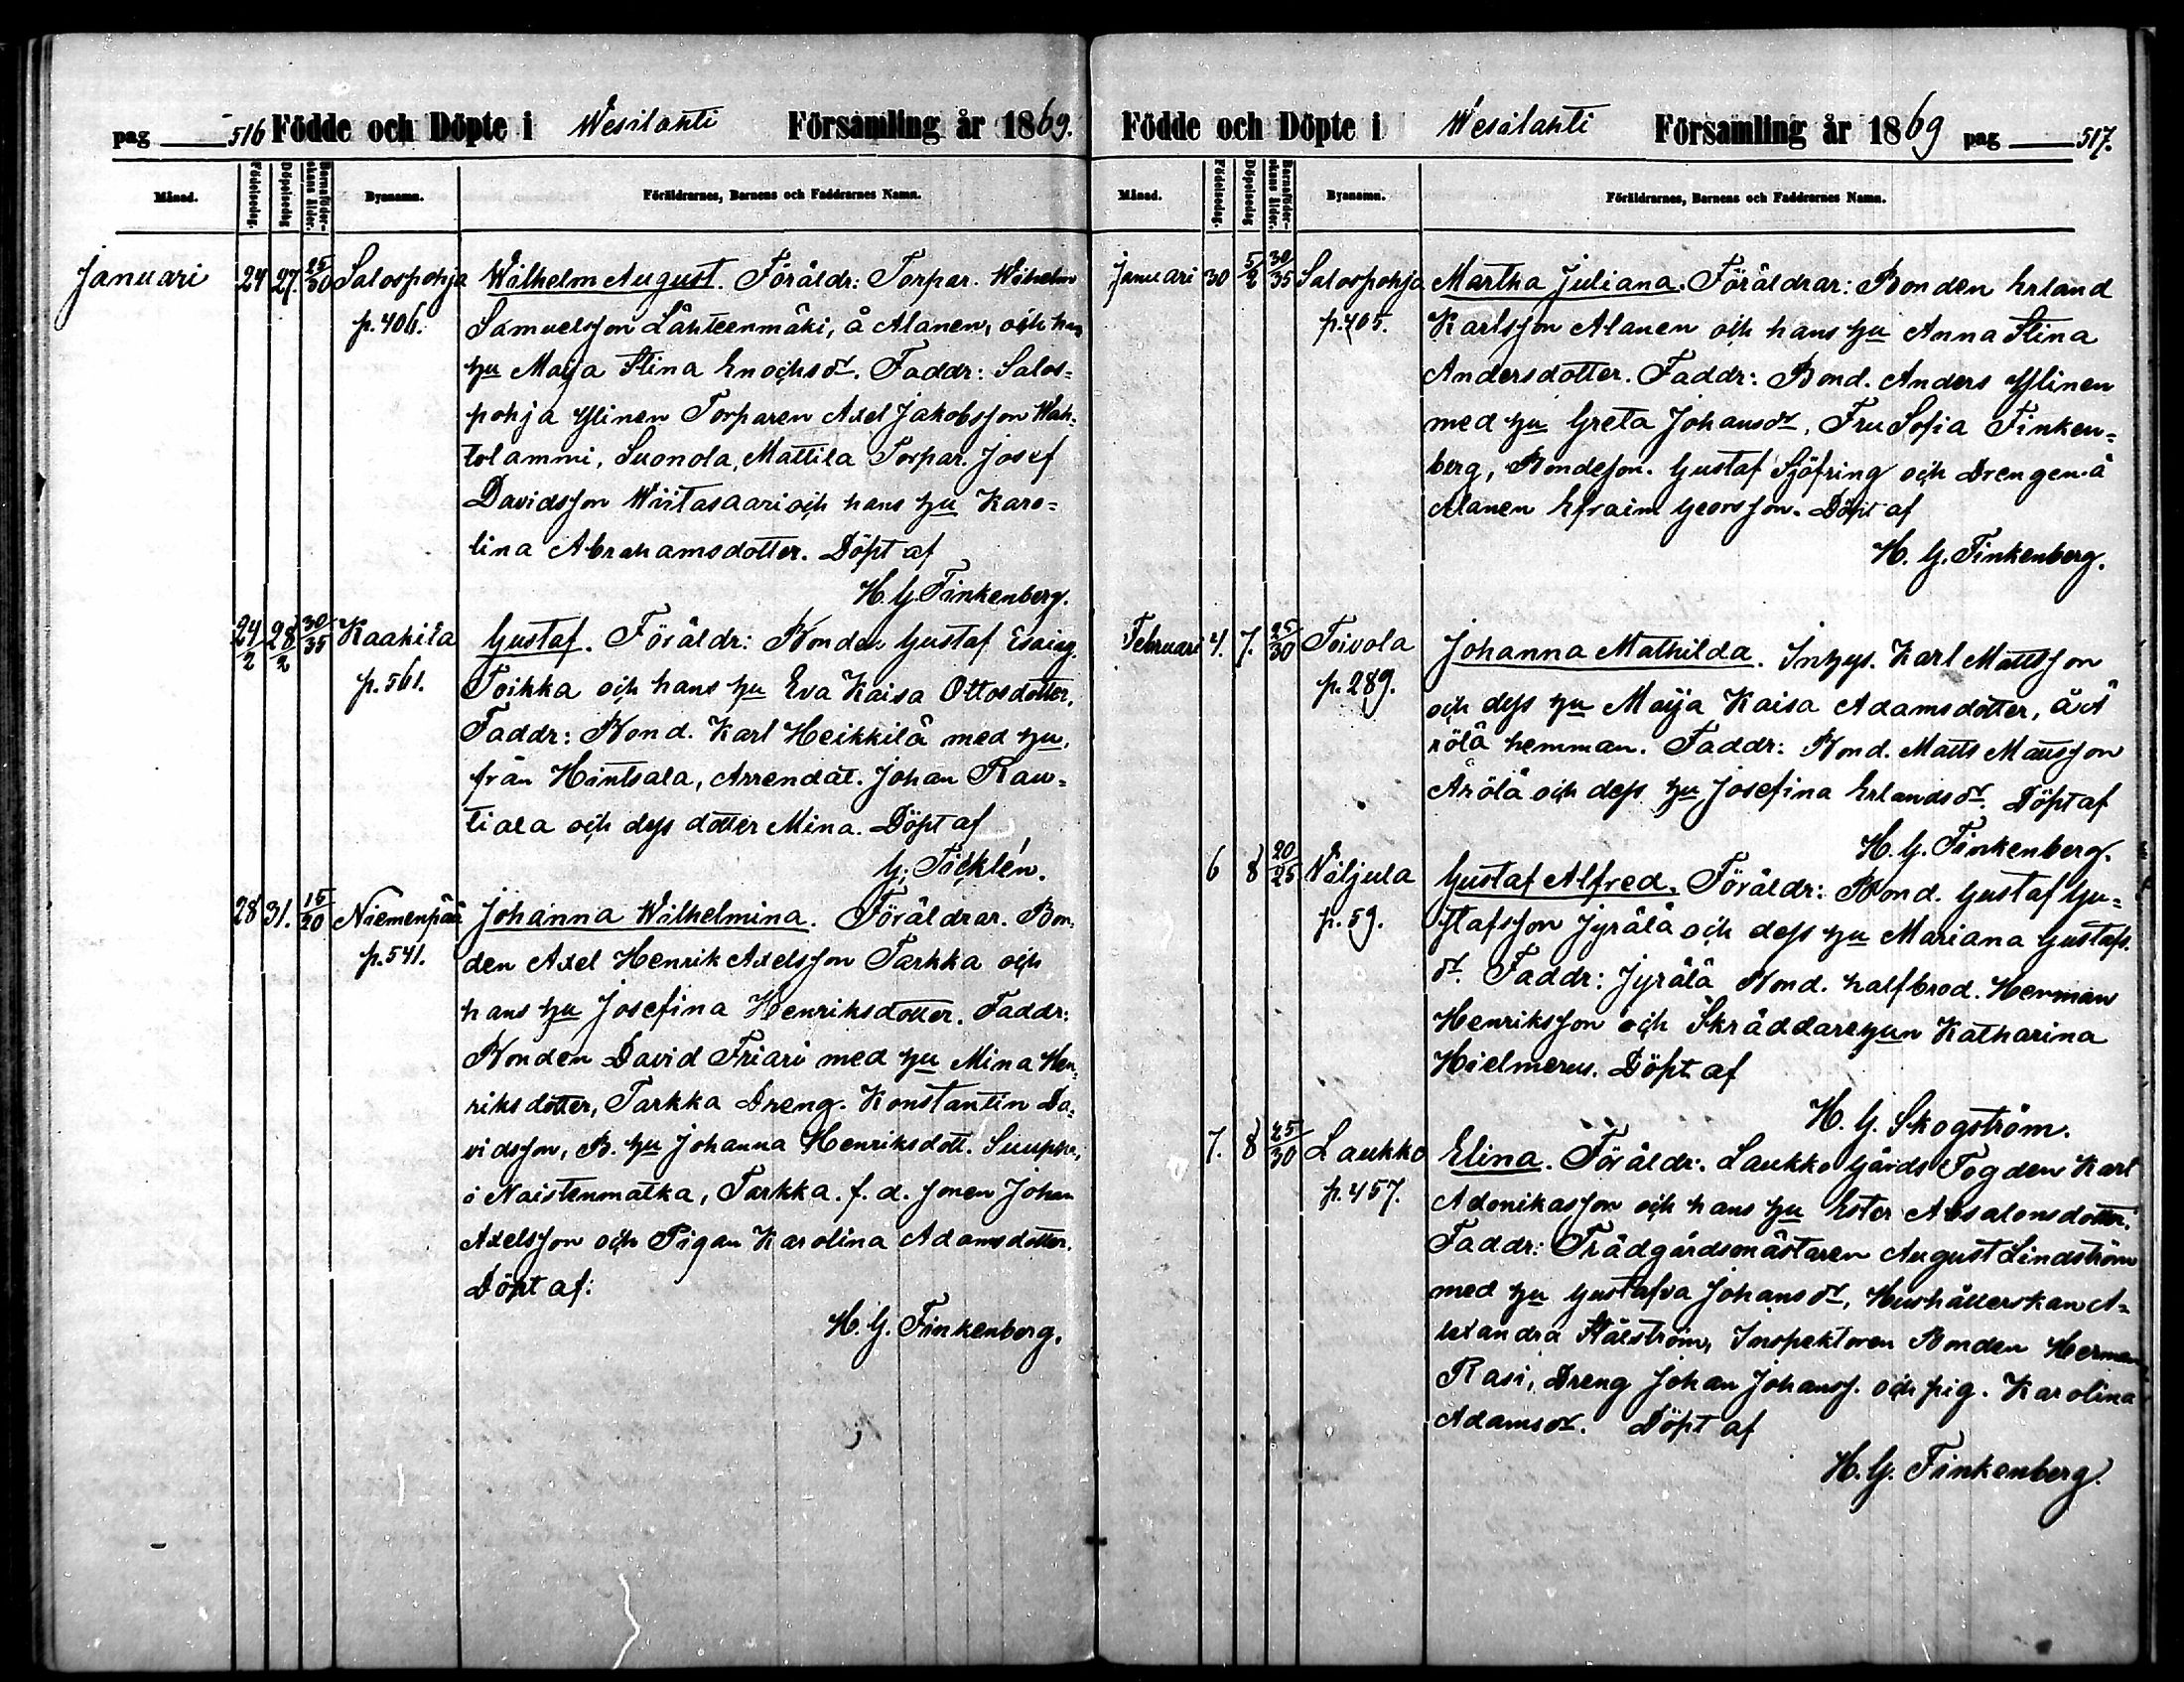 pag 516 Födde och Döpte i Wesilahti Församling år 1869.
Månad. Födelsedag. Döpelsedag Barnaföder-skans ålder. Byanamn. Föräldrarnes, Barnens och Faddrarnes Namn.
Januari 24 27. 25/30 Salospohja Wilhelm August. Föräldr: Torpar. Wilhelm
p. 406. Samuelsson Lähteenmäki, å Alanen, och hans
hu Maja Stina Enochsdr. Faddr: Salos-
pohja Ylinen Torparen Axel Jakobsson Wah-
tolammi, Suonola, Mattila Torpar. Josef
Davidsson Wiitasaari och hans hu Karo-
lina Abrahamsdotter. Döpt af
H. G. Finkenberg.
24/2 28/2 30/35 Kaakila Gustaf. Föräldr: Bonden Gustaf Esaias.
p. 561. Toikka och hans hu Eva Kaisa Ottosdotter.
Faddr: Bond. Karl Heikkilä med hu,
från Hintsala, Arrendat. Johan Rau-
tiala och dess dotter Mina. Döpt af
G. Ticklén.
28 31. 15/20 Niemenpää Johanna Wilhelmina. Föräldrar. Bon-
p. 541. den Axel Henrik Axelsson Tarkka och
hans hu Josefina Henriksdotter. Faddr:
Bonden David Friari med hu Mina Hen-
riksdotter, Tarkka Dreng. Konstantin Da-
vidsson, B. hu Johanna Henriksdott.
i Naistenmatka, Tarkka. f. d. Johan
Axelsson och Pigan Karolina Adamsdotter.
Döpt af:
H. G. Finkenberg.
Födde och Döpte i Wesilahti Församling år 1869 pag 517.
Månad. Födelsedag. Döpelsedag Barnaföder-skans ålder. Byanamn. Föräldrarnes, Barnens och Faddrarnes Namn.
Januari 30 5/2 30/35 Salospohja Martha Juliana. Föräldrar: Bonden Erland
p. 405. Karlsson Alanen och hans hu Anna Stina
Andersdotter. Faddr: Bond. Anders Ylinen
med hu Greta Johansdr, Fru Sofia Finken-
berg, Bondeson. Gustaf Sjöfring och Drengen å
Alanen Efraim Georsson. Döpt af
H. G. Finkenberg.
Februari 4. 7. 25/30 Toivola Johanna Mathilda. Inhys. Karl Mattsson
p. 289. och dess hu Maija Kaisa Adamsdotter, å Ä
rölä hemman. Faddr: Bond. Matts Mattsson
Ärölä och dess hu Josefina Erlandsdr. Döpt af
H. G. Finkenberg.
6 8 20/25 Näljula Gustaf Alfred. Föräldr: Bond. Gustaf Gu-
p. 59. stafsson Jyrälä och dess hu Mariana Gustafs.
dr. Faddr: Jyrälä Bond. halfbrod. Herman
Henriksson och Skräddarehun Katharina
Hielmerus. Döpt af
H. G. Skogström.
7. 8 25/30 Laukko Elina. Föräldr: Laukko Gårds Fogden Karl
p. 457. Adonikasson och hans hu Ester Absalonsdotter.
Faddr: Trädgårdsmästaren August Lindström
med hu Gustafva Johansdr, Hushållerskan A-
lexandra Stålström, Inspektoren Bonden Herman
Rasi, Dreng Johan Johanss. och pig. Karolina
Adamsdr. Döpt af
H. G. Finkenberg.